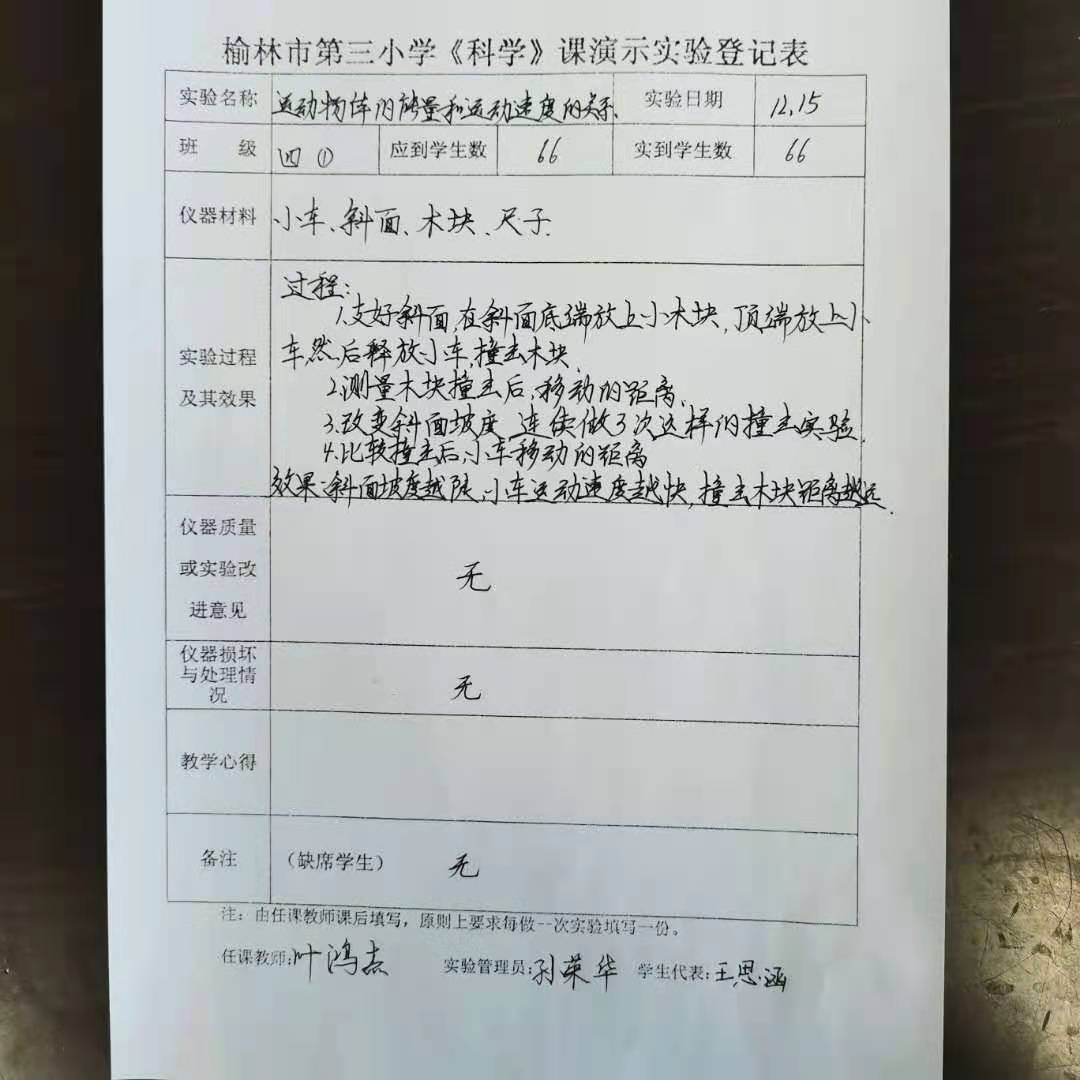 榆林市第三小学《科学》课演示实验登记表
实验名称 运动物体的能量和运动速度的关系 实验日期 12.15
班 级 四① 应到学生数 66 实到学生数 66
仪器材料 小车、斜面、木块、尺子.
过程:
1.支好斜面,在斜面底端放上小木块,顶端放上小
实验过程 车,然后释放小车,撞击木块.
及其效果 2.测量木块撞击后,移动的距离.
3.改变斜面坡度,连续做3次这样的撞击实验.
4.比较撞击后,小车移动的距离
效果:斜面坡度越陡,小车运动速度越快,撞击木块距离越远.
仪器质量
或实验改 无
进意见
仪器损坏
与处理情 无
况
教学心得
备注 (缺席学生) 无
注:由任课教师课后填写,原则上要求每做一次实验填写一份。
任课教师:叶鸿杰 实验管理员:孙荣华 学生代表:王思涵